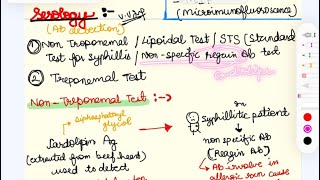 Serology :- V.V.Imp
(Microimmunofluorescence)
(Ab detection)
① Non Treponemal / Lipoidal Test / STS (Standard
Test for Syphilis / Non-specific Reagin Ab test
② Treponemal Test
Non-Treponemal Test :→
diphosphatidyl
glycol
Cardiolpin Ag
(extracted from beef heart)
used to detect
In
Syphillitic patient
↓
non specific Ab
(Reagin Ab)
→ Ab involve in
allergic rxn cause